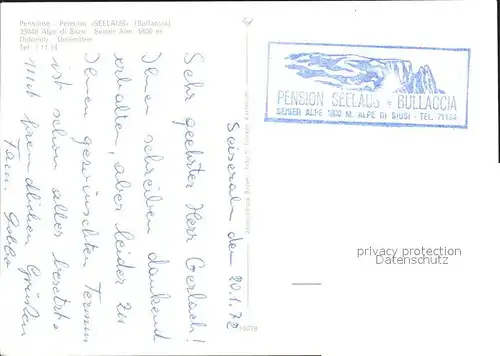 Pensione - Pension «SEELAUS» (Bullaccia)
39040 Alpe di Siusi - Seiser Alm 1800 m
Dolomiti - Dolomiten
Tel. 71154
PENSION SEELAUS * BULLACCIA
SEISER ALPE 1800 M. ALPE DI SIUSI - TEL. 71154
Seiseralm den 20.1.72
Sehr geehrter Herr Gerlach!
Ihnen schreiben dankend
erhalten, aber leider zu
Ihnen gewünschten Termin
ist schon alles besetzt.
Mit freundlichen Grüßen
Fam.
privacy protection
Datenschutz